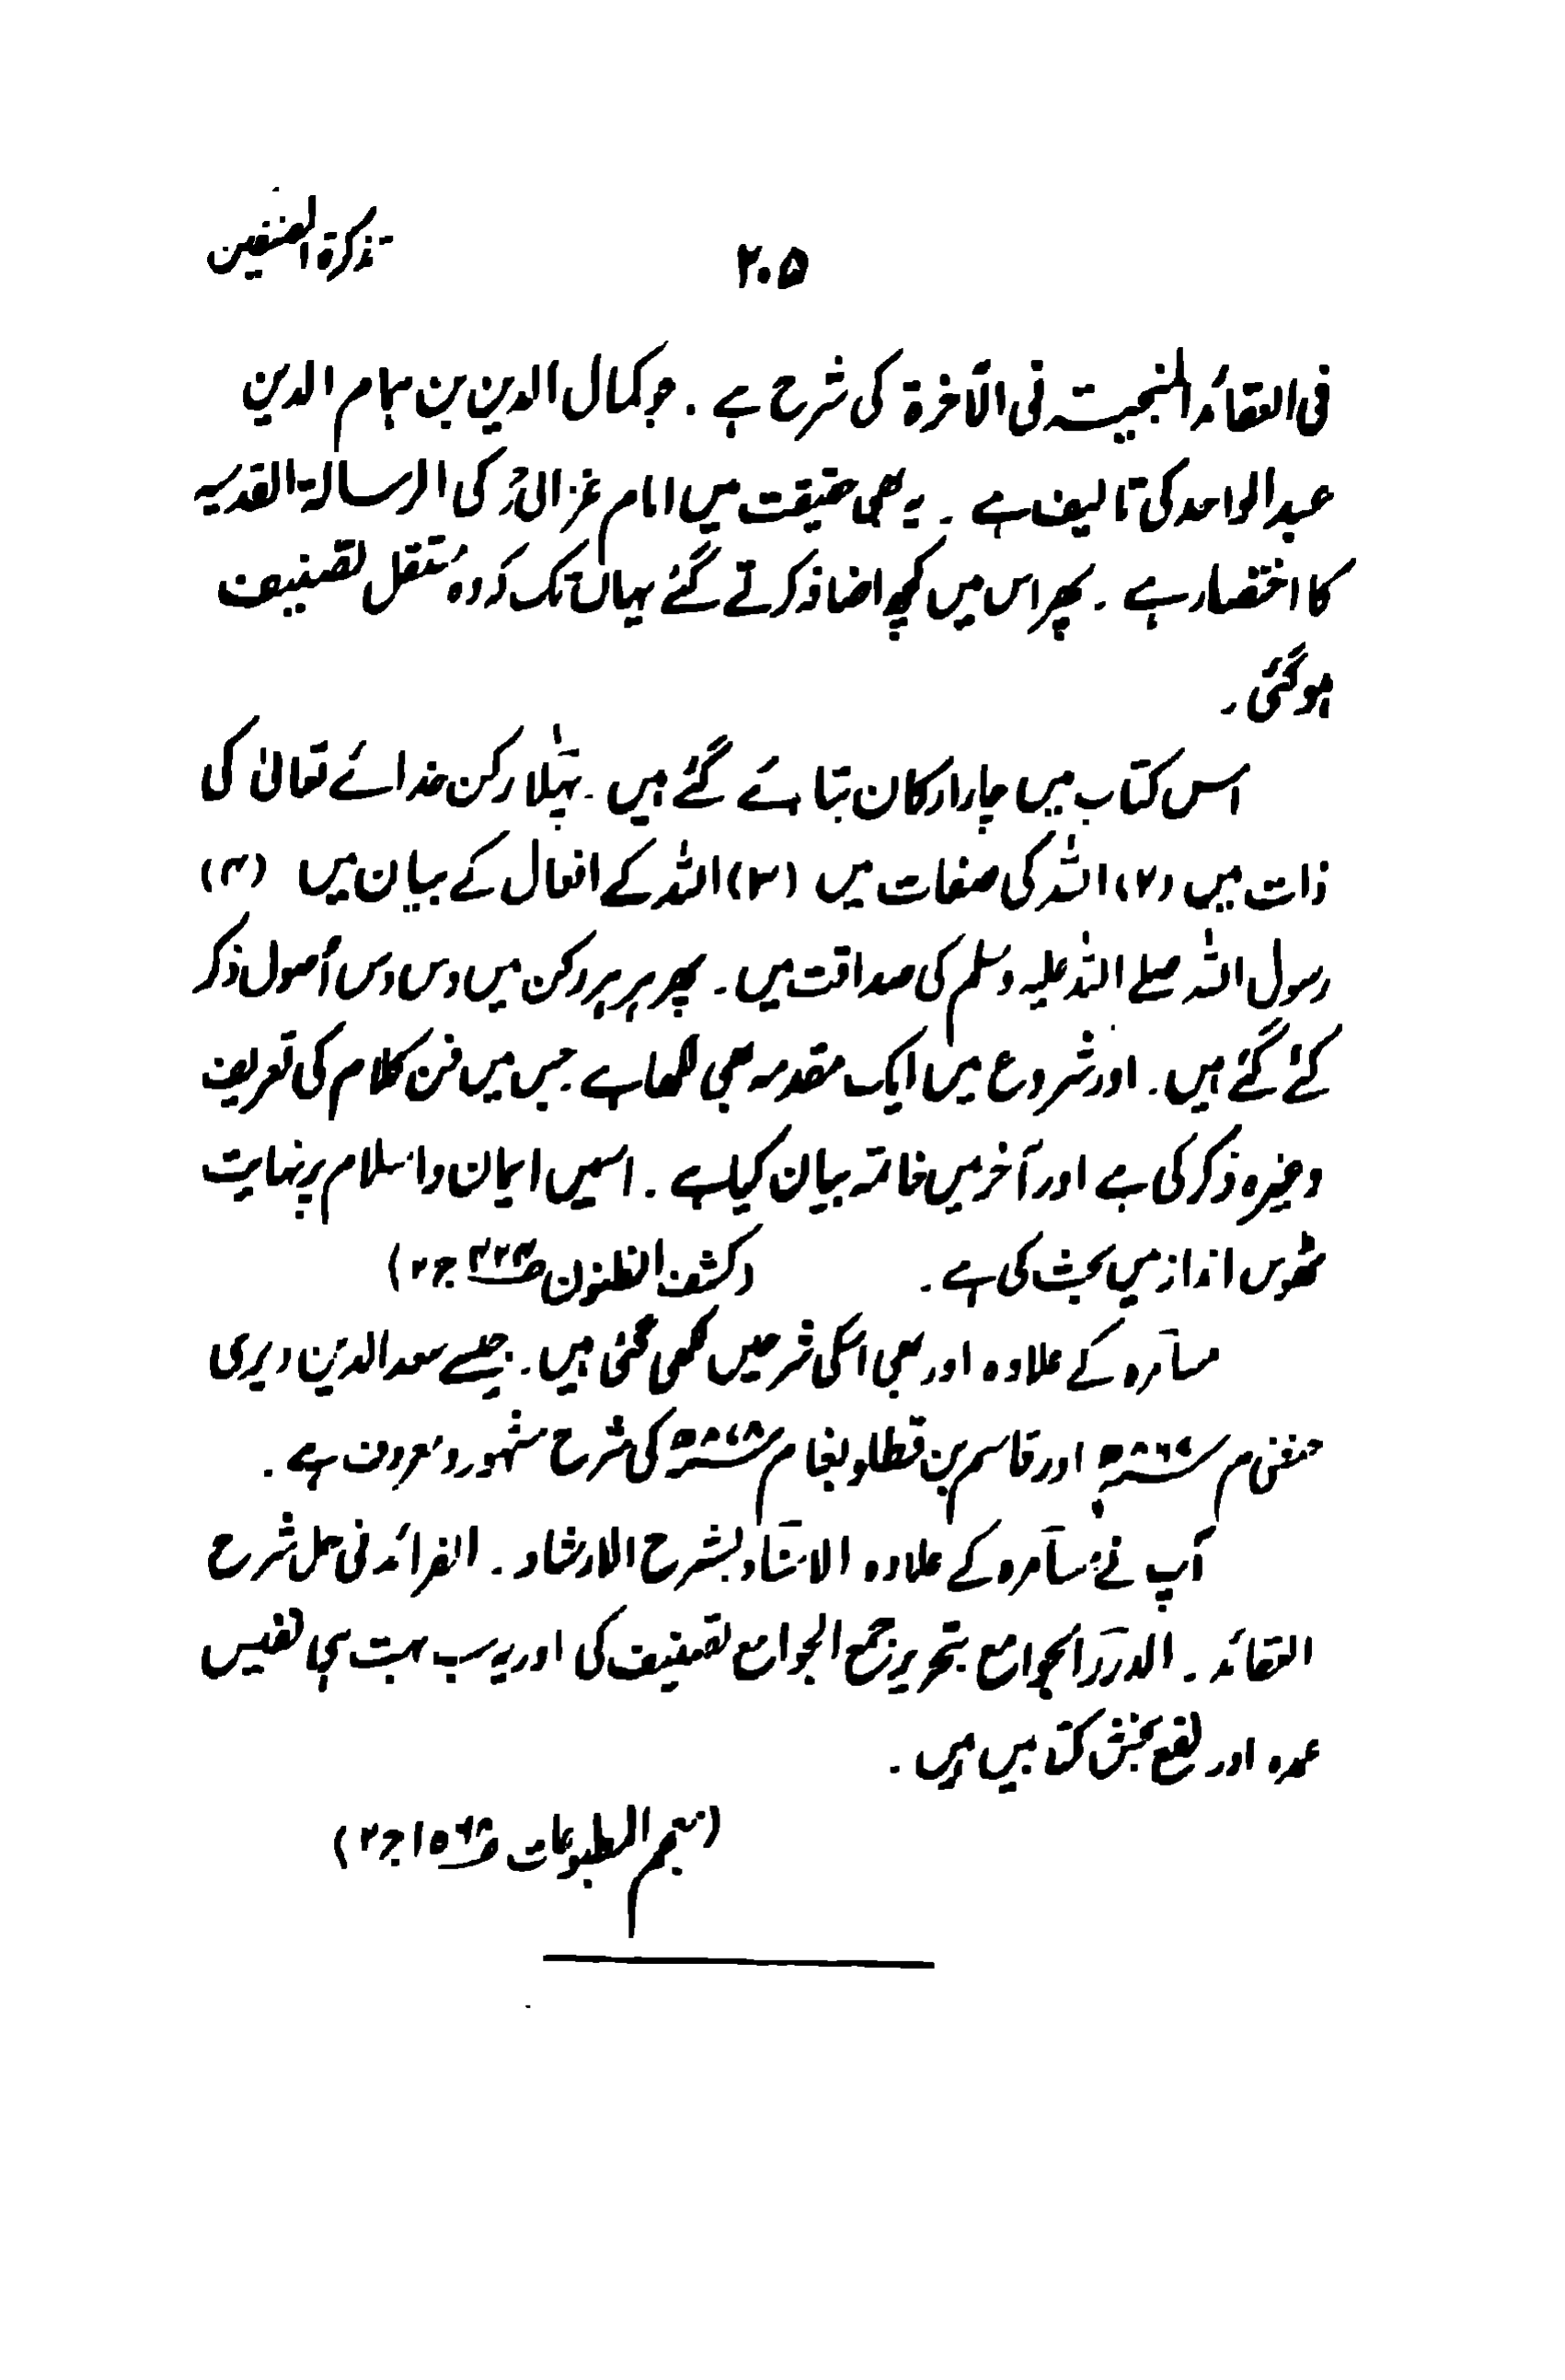 تذکرۃ المصنفین
۲۰۵
فی العقائد المنجیۃ فی الآخرۃ کی شرح ہے ۔ جو کمال الدین بن ہمام الدین
عبدالواحد کی تالیف ہے ۔ یہ بھی حقیقت میں امام غزالیؒ کی الرسالۃ القدسیہ
کا اختصار ہے ۔ پھر اس میں کچھ اضافہ کرتے گئے یہاں تک کہ وہ مستقل تصنیف
ہوگئی ۔
اس کتاب میں چار ارکان بتائے گئے ہیں ۔ پہلا رکن خدائے تعالیٰ کی
ذات میں (۲) اللہ کی صفات میں (۳) اللہ کے افعال کے بیان میں (۴)
رسول اللہ صلے اللہ علیہ وسلم کی صداقت میں ۔ پھر ہر ہر رکن میں دس دس اُصول ذکر
کئے گئے ہیں ۔ اور شروع میں ایک مقدمہ بھی لکھا ہے جس میں فن کلام کی تعریف
وغیرہ ذکر کی ہے اور آخر میں خاتمہ بیان کیا ہے ۔ اسمیں ایمان و اسلام پر نہایت
ٹھوس انداز میں بحث کی ہے ۔ (کشف الظنون ج۲)
مسامرہ کے علاوہ اور بھی اسکی شرحیں لکھی گئی ہیں ۔ جیسے سعد الدین دیری
حنفی م ۸۶۷ھ اور قاسم بن قطلوبغا م ۸۷۹ھ کی شرح مشہور و معروف ہے ۔
آپ نے مسامرہ کے علاوہ الاسعاد بشرح الارشاد ۔ الفرائد فی حل شرح
العقائد ۔ الدرر اللوامع بتحریر جمع الجوامع تصنیف کی اور یہ سب بہت ہی نفیس
عمدہ اور نفع بخش کتابیں ہیں ۔
(معجم المطبوعات ج۲)